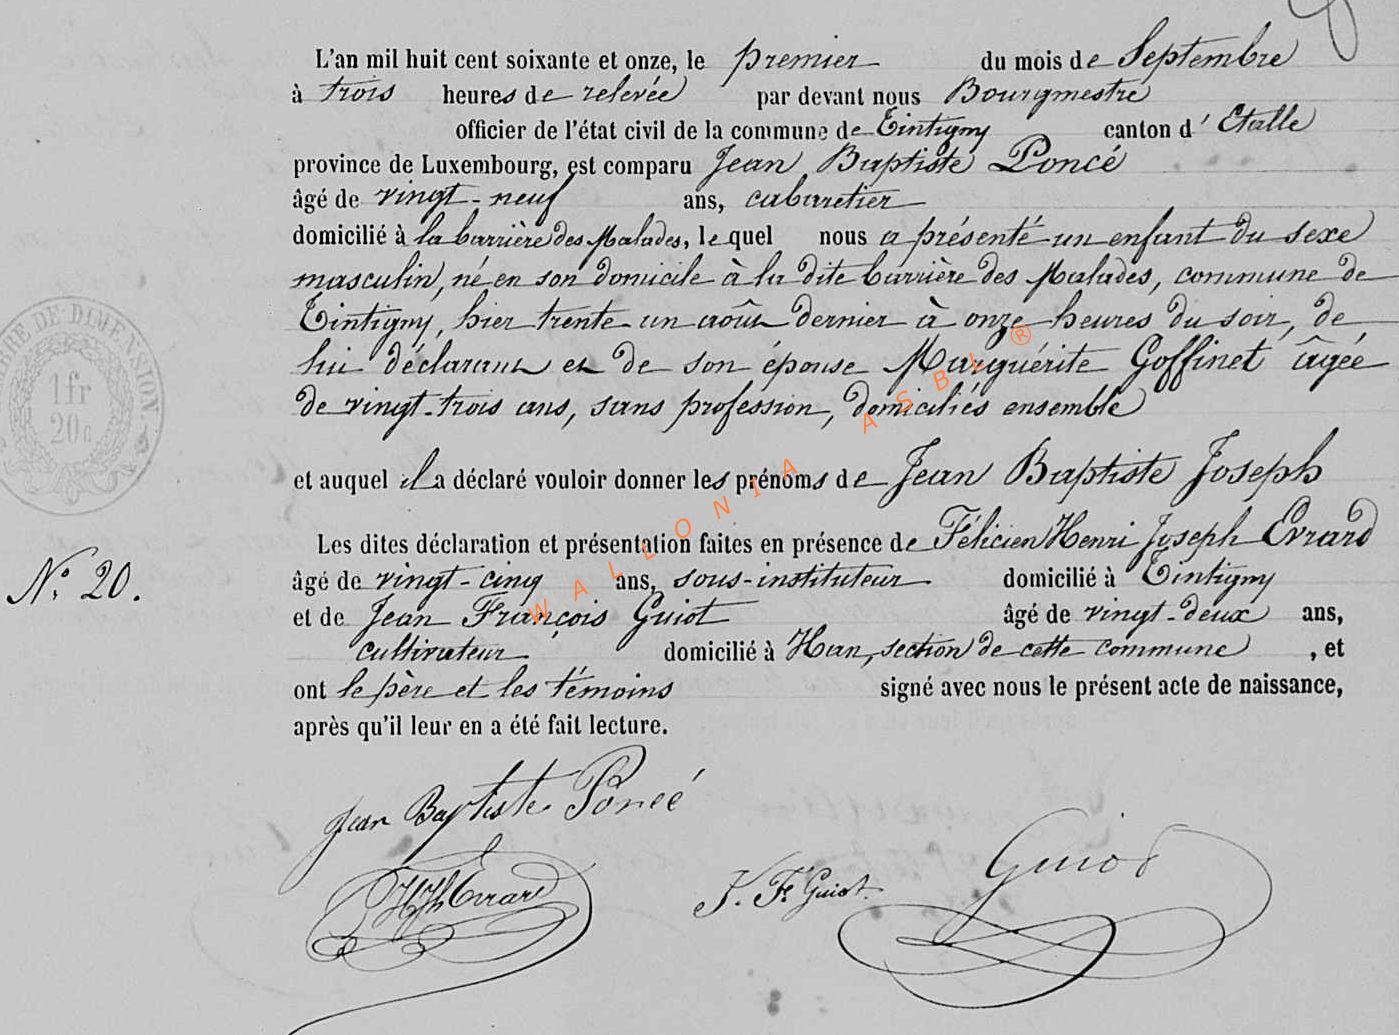 L'an mil huit cent soixante et onze, le premier du mois de Septembre
à trois heures de relevée par devant nous Bourgmestre
officier de l'état civil de la commune de Tintigny canton d' Etalle
province de Luxembourg, est comparu Jean Baptiste Poncé
âgé de vingt-neuf ans, cabaretier
domicilié à la barrière des Malades, le quel nous a présenté un enfant du sexe
masculin, né en son domicile à la dite barrière des Malades, commune de
Tintigny, hier trente-un août dernier à onze heures du soir, de
lui déclarant et de son épouse Marguérite Goffinet âgée
de vingt-trois ans, sans profession, domiciliés ensemble
et auquel il a déclaré vouloir donner les prénoms de Jean Baptiste Joseph
Les dites déclaration et présentation faites en présence de Félicien Henri Joseph Evrard
âgé de vingt-cinq ans, sous-instituteur domicilié à Tintigny
et de Jean François Guiot âgé de vingt-deux ans,
cultivateur domicilié à Han, section de cette commune, et
ont le père et les témoins signé avec nous le présent acte de naissance,
après qu'il leur en a été fait lecture.
N° 20.
TIMBRE DE DIMENSION
1 fr
20 c
Jean Baptiste Poncé
Evrard
J. Fs Guiot.
Guiot
WALLONIA ASBL ®